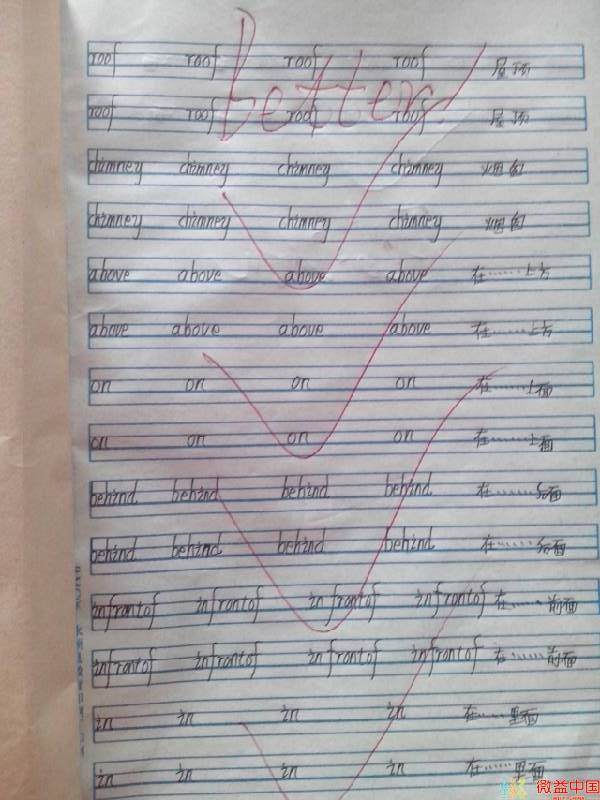 Better
roof roof roof roof 屋顶
roof roof roof roof 屋顶
chimney chimney chimney chimney 烟囱
chimney chimney chimney chimney 烟囱
above above above above 在……上方
above above above above 在……上方
on on on on 在……上面
on on on on 在……上面
behind behind behind behind 在……后面
behind behind behind behind 在……后面
infrontof infrontof in frontof in frontof 在……前面
infrontof infrontof in frontof in frontof 在……前面
in in in in 在……里面
in in in in 在……里面
微益中国